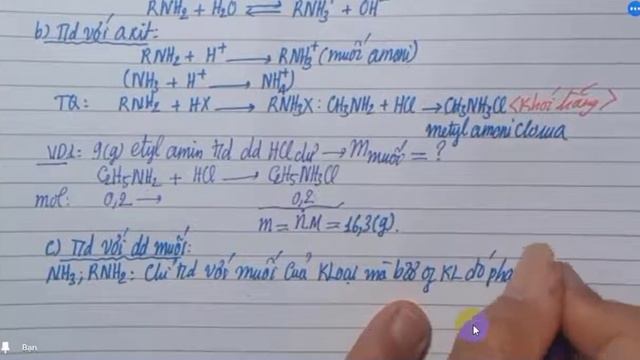 RNH₂ + H₂O ⇌ RNH₃⁺ + OH⁻
b) Td với axit:
RNH₂ + H⁺ → RNH₃⁺ (muối amoni)
(NH₃ + H⁺ → NH₄⁺)
TQ: RNH₂ + HX → RNH₃X : CH₃NH₂ + HCl → CH₃NH₃Cl <Khói trắng>
metyl amoni clorua
VD1: 9(g) etyl amin td dd HCl dư → m muối = ?
C₂H₅NH₂ + HCl → C₂H₅NH₃Cl
mol: 0,2 → 0,2
m = n.M = 16,3(g).
c) Td với dd muối:
NH₃; RNH₂: Chỉ td với muối của KLoại mà bazơ KL đó
Bạn